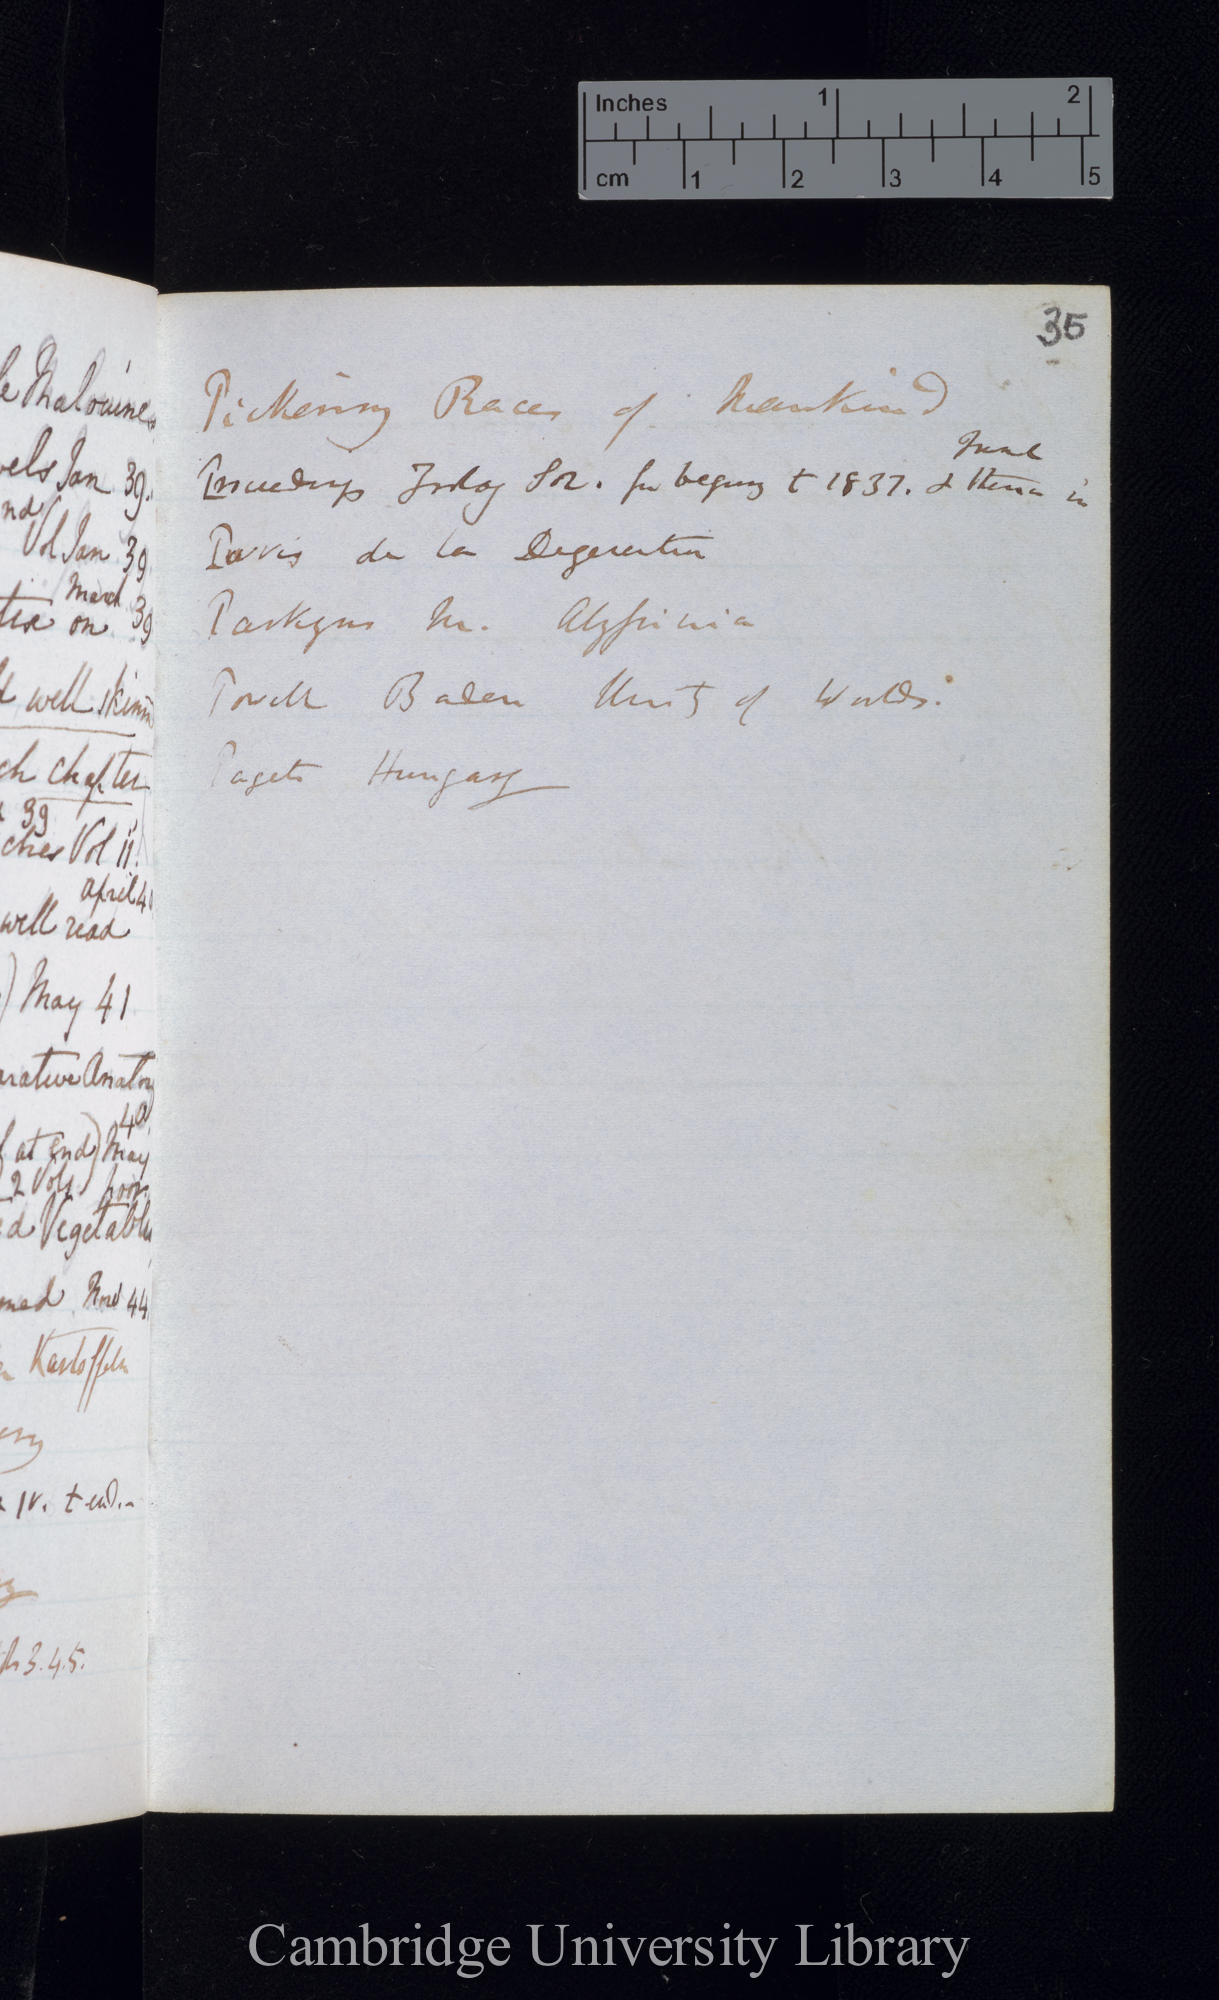 Inches 1 2
cm 1 2 3 4 5
35
le Malouines
vels Jan 39.
nd
Vol Jan 39
March
on 39
well skimd
ch chapter
39
ches Vol ii.
April 40
well read
) May 41
arative Anatomy
40
at end) May
2 Vols. poor
ed Vegetable
med Nov 44
Kartoffeln
IV. t end.-
3.4.5.
Pickering Races of Mankind
Proceedings Zoolog Soc. fr beging t 1837. & thence in
Trans
Parvis de la Degeneration
Parkyns M. Abyssinia
Powell Baden Unity of Worlds.
Pagets Hungary
Cambridge University Library